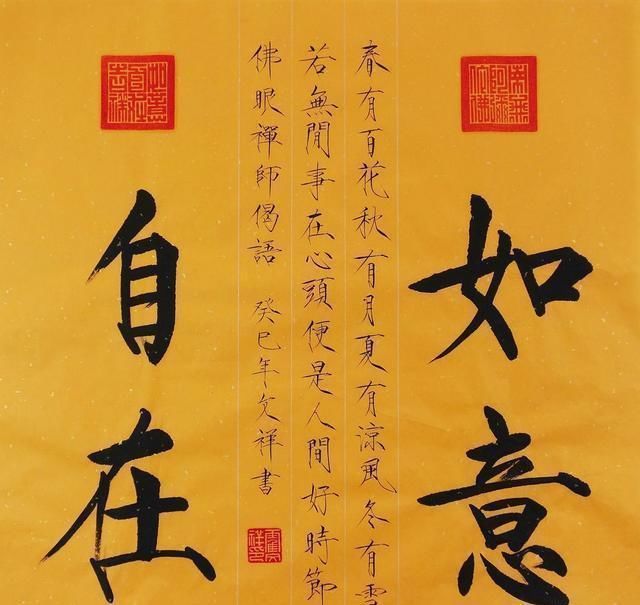 如意
春有百花秋有月夏有涼風冬有雪
若無閒事在心頭便是人間好時節
佛眼禪師偈語 癸巳年文祥書
自在